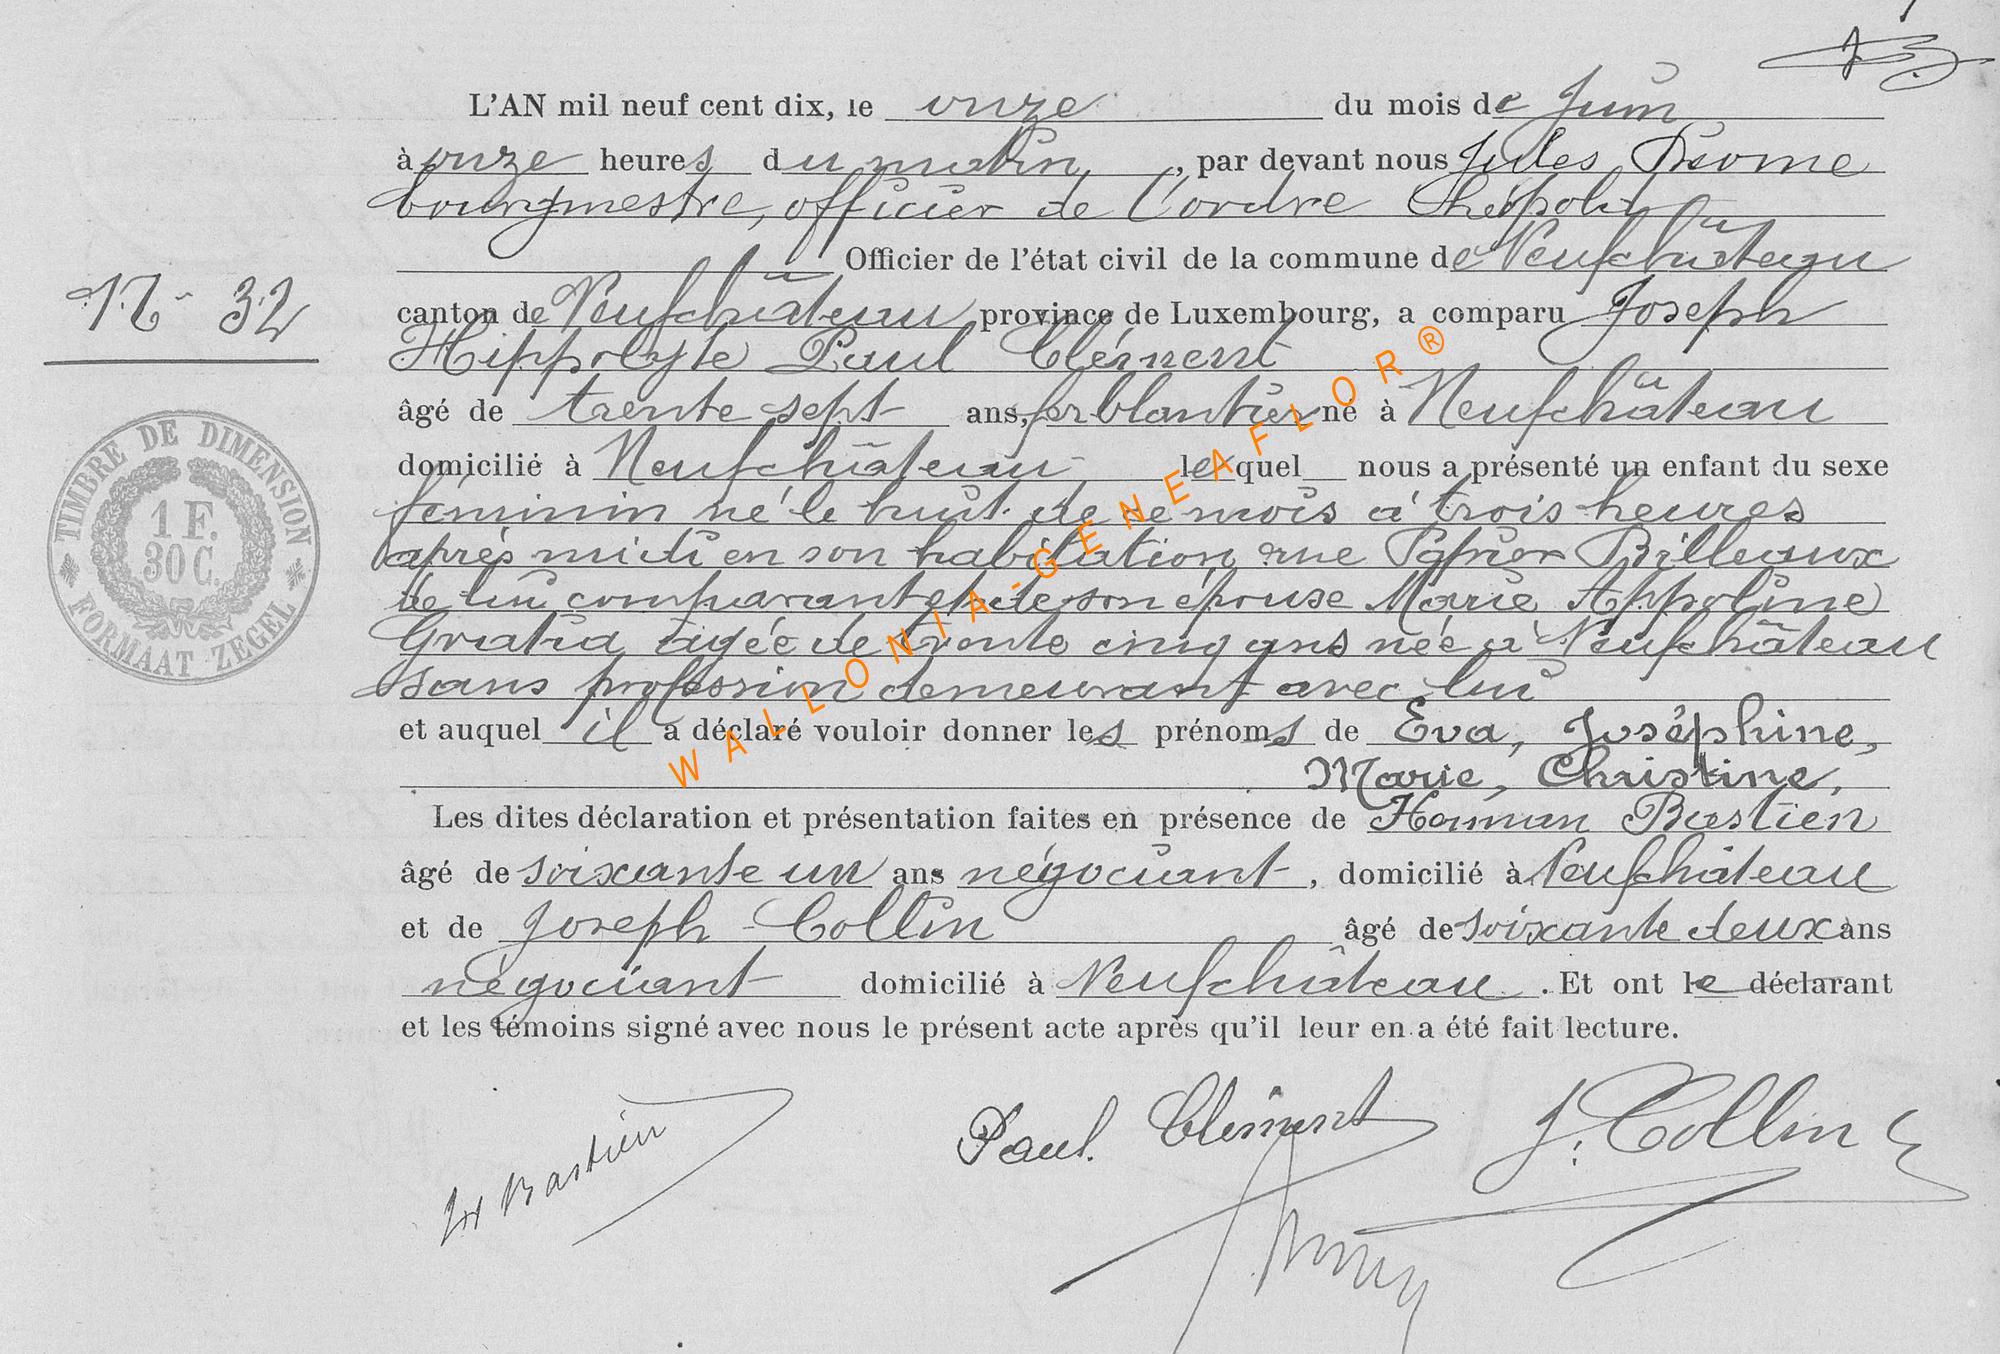 L'AN mil neuf cent dix, le onze du mois de Juin
à onze heures du matin, par devant nous Jules
bourgmestre, officier de l'ordre Léopold
Officier de l'état civil de la commune de Neufchâteau
N° 32
canton de Neufchâteau province de Luxembourg, a comparu Joseph
Hippolyte Paul Clément
âgé de trente sept ans, ferblantier né à Neufchâteau
domicilié à Neufchâteau lequel nous a présenté un enfant du sexe
féminin né le huit de ce mois à trois heures
après midi en son habitation rue Billeaux
de lui comparant et de son épouse Marie Appoline
âgée de trente cinq ans née à Neufchâteau
sans profession demeurant avec lui
et auquel il a déclaré vouloir donner les prénoms de Eva, Joséphine,
Marie, Christine,
Les dites déclaration et présentation faites en présence de Herman Bastien
âgé de soixante un ans négociant, domicilié à Neufchâteau
et de Joseph Collin âgé de soixante deux ans
négociant domicilié à Neufchâteau. Et ont le déclarant
et les témoins signé avec nous le présent acte après qu'il leur en a été fait lecture.
TIMBRE DE DIMENSION
1 F.
30 C.
FORMAAT ZEGEL
WALLONIA-GENEAFLOR®
H Bastien
Paul Clément
J. Collin